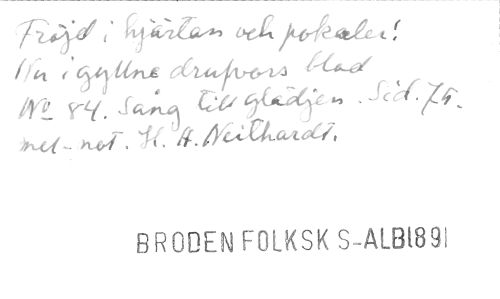 Fröjd i hjärtan och pokaler!
Nu i gyllne drufvors blod
No 84. Sång till glädjen. Sid. 75.
mel-not. H. A. Neithardt.
BRODEN FOLKSK S-ALB1891